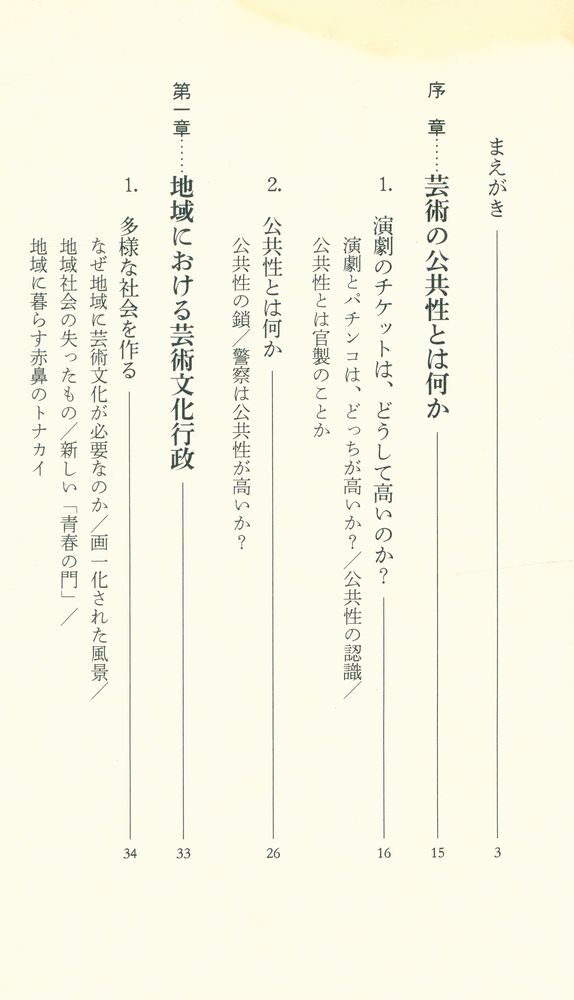 まえがき 3
序　章……芸術の公共性とは何か 15
1. 演劇のチケットは、どうして高いのか？ 16
演劇とパチンコは、どっちが高いか？／公共性の認識／
公共性とは官製のことか
2. 公共性とは何か 26
公共性の鎖／警察は公共性が高いか？
第一章……地域における芸術文化行政 33
1. 多様な社会を作る 34
なぜ地域に芸術文化が必要なのか／画一化された風景／
地域社会の失ったもの／新しい「青春の門」／
地域に暮らす赤鼻のトナカイ